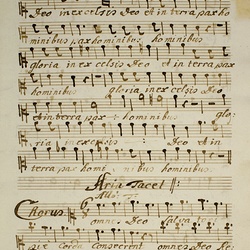 Deo in excelsis Deo et in terra pax ho
minibus pax hominibus hominibus
gloria in excelsis Deo et in terra pax
hominibus gloria in excelsis Deo
et in terra pax hominibus glo:
ria in excelsis Deo et in
terra pax homi nibus hominibus
Aria Tacet
Chorus
omnes Deo
corda